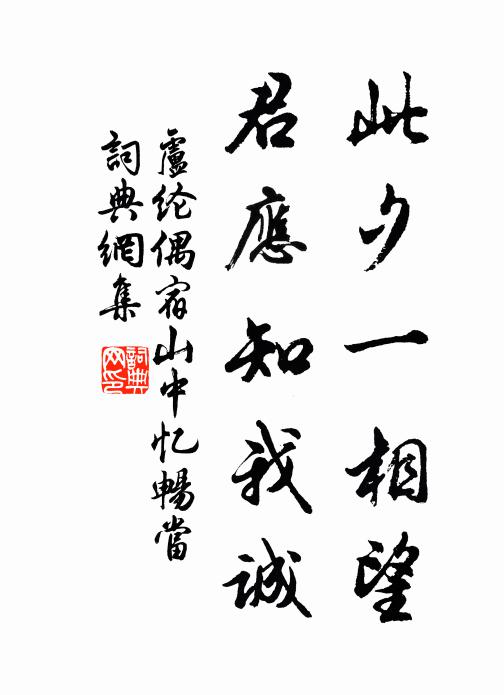 此夕一相望
君應知我誠
盧纶偶宿山中忆暢當
詞典網集
詞典网印